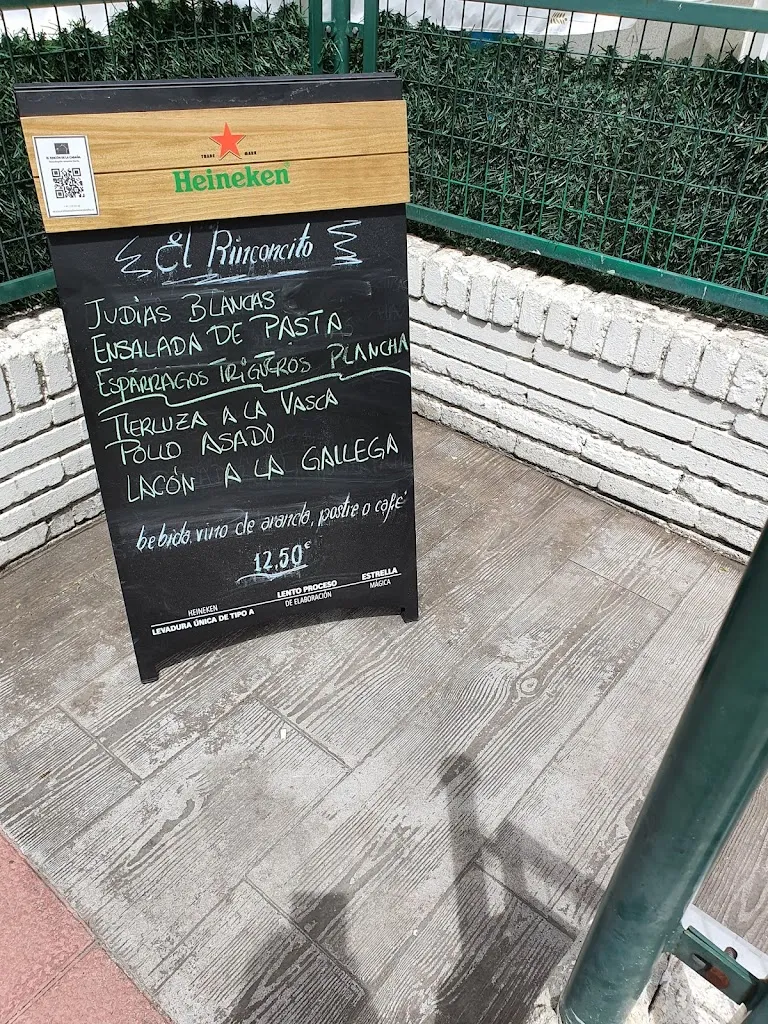 TRADE MARK
Heineken
El Rinconcito
JUDIAS BLANCAS
ENSALADA DE PASTA
ESPÁRRAGOS TRIGUEROS PLANCHA
MERLUZA A LA VASCA
POLLO ASADO
LACÓN A LA GALLEGA
bebida, vino de aranda, postre o café
12,50€
HEINEKEN
LEVADURA ÚNICA DE TIPO A
LENTO PROCESO
DE ELABORACIÓN
ESTRELLA
MÁGICA